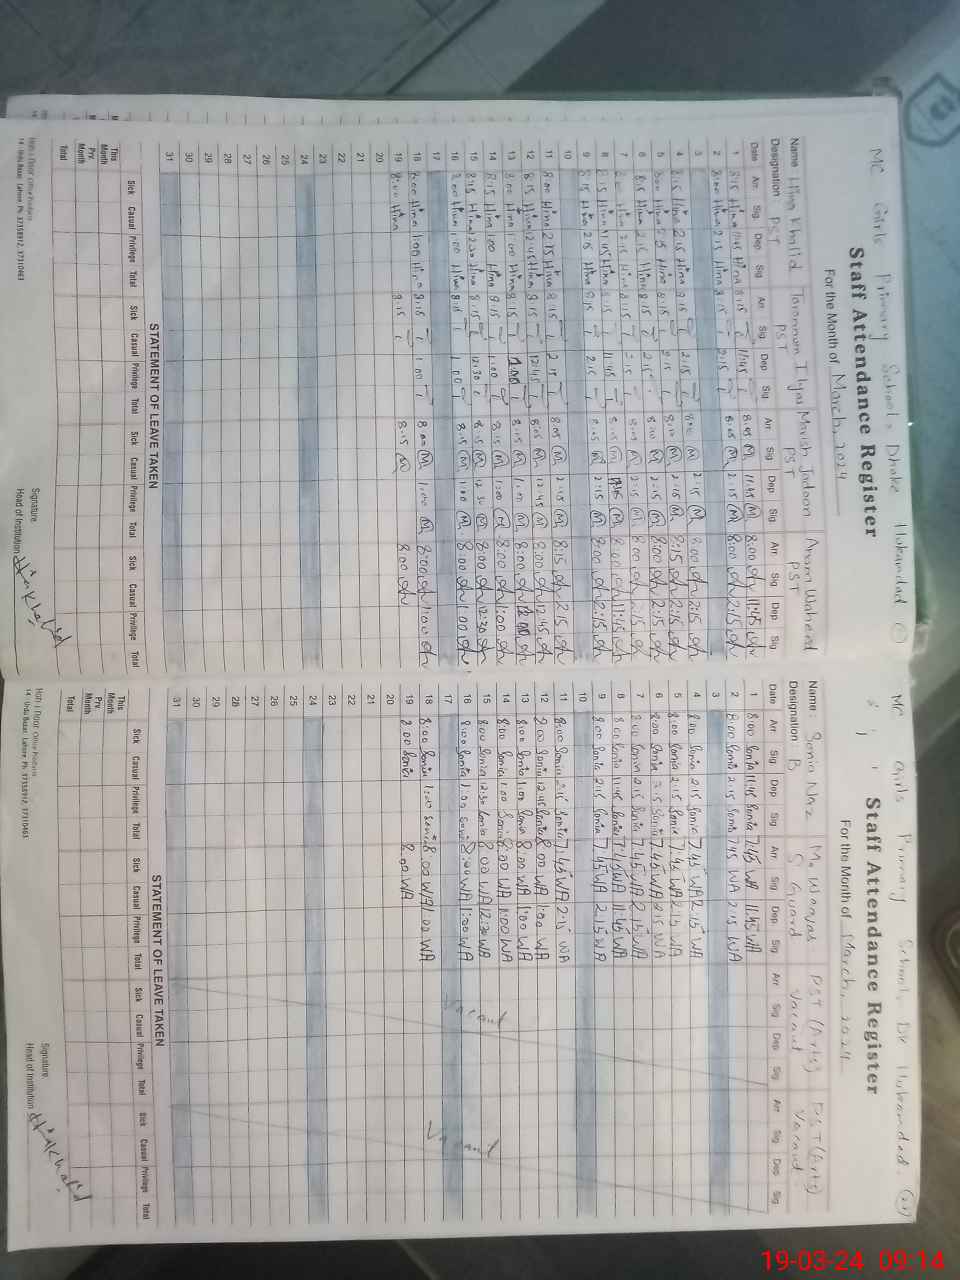 MC Girls Primary School, Dhoke Hukamdad (1)
Staff Attendance Register
For the Month of March, 2024
Name Hina Khalid Tarannum Ilyas Mavish Jadoon Anam Waheed
Designation: PST PST PST PST
Date Arr. Sig Dep Sig Arr Sig Dep Sig Arr Sig Dep Sig Arr Sig Dep Sig
1 8:15 Hina 11:45 Hina 8:15 11:45 8:05 M 11:45 M 8:00 11:45
2 8:00 Hina 2:15 Hina 8:15 2:15 8:05 M 2:15 M 8:00 2:15
3
4 8:15 Hina 2:15 Hina 8:15 2:15 8:00 M 2:15 M 8:00 2:15
5 8:00 Hina 2:15 Hina 8:15 2:15 8:10 M 2:15 M 8:15 2:15
6 8:15 Hina 2:15 Hina 8:15 2:15 8:00 M 2:15 M 8:00 2:15
7 8:00 Hina 2:15 Hina 8:15 2:15 8:05 M 2:15 M 8:00 2:15
8 8:15 Hina 11:45 Hina 8:15 11:45 8:15 M 11:45 M 8:00 11:45
9 8:15 Hina 2:15 Hina 8:15 2:15 8:05 M 2:15 M 8:00 2:15
10
11 8:00 Hina 2:15 Hina 8:15 2:15 8:05 M 2:15 M 8:15 2:15
12 8:15 Hina 12:45 Hina 8:15 12:45 8:05 M 12:45 M 8:00 12:45
13 8:00 Hina 1:00 Hina 8:15 1:00 8:15 M 1:00 M 8:00 1:00
14 8:15 Hina 1:00 Hina 8:15 1:00 8:15 M 1:00 M 8:00 1:00
15 8:15 Hina 12:30 Hina 8:15 12:30 8:15 M 12:30 M 8:00 12:30
16 8:00 Hina 1:00 Hina 8:15 1:00 8:15 M 1:00 M 8:00 1:00
17
18 8:00 Hina 1:00 Hina 8:15 1:00 8:00 M 1:00 M 8:00 1:00
19 8:00 Hina 8:15 8:15 M 8:00
20
21
22
23
24
25
26
27
28
29
30
31
STATEMENT OF LEAVE TAKEN
Sick Casual Privilege Total Sick Casual Privilege Total Sick Casual Privilege Total Sick Casual Privilege Total
This Month
Prv. Month
Total
Signature
Head of Institution Hina Khalid
High 1 Floor Office Products
14 - Urdu Bazar, Lahore. Ph. 37358912, 37310463
MC Girls Primary School, Dk Hukamdad.
Staff Attendance Register
For the Month of March, 2024
Name: Sonia Naz M. Waqas PST (Arts) PST (Arts)
Designation: B S Guard Vacant Vacant
Date Arr Sig Dep Sig Arr Sig Dep Sig Arr Sig Dep Sig Arr Sig Dep Sig
1 8:00 Sonia 11:45 Sonia 7:45 WA 11:45 WA
2 8:00 Sonia 2:15 Sonia 7:45 WA 2:15 WA
3
4 8:00 Sonia 2:15 Sonia 7:45 WA 2:15 WA
5 8:00 Sonia 2:15 Sonia 7:45 WA 2:15 WA
6 8:00 Sonia 2:15 Sonia 7:45 WA 2:15 WA
7 8:00 Sonia 2:15 Sonia 7:45 WA 2:15 WA
8 8:00 Sonia 11:45 Sonia 7:45 WA 11:45 WA
9 8:00 Sonia 2:15 Sonia 7:45 WA 2:15 WA
10
11 8:00 Sonia 2:15 Sonia 7:45 WA 2:15 WA
12 8:00 Sonia 12:45 Sonia 8:00 WA 1:00 WA
13 8:00 Sonia 1:00 Sonia 8:00 WA 1:00 WA
14 8:00 Sonia 1:00 Sonia 8:00 WA 1:00 WA
15 8:00 Sonia 12:30 Sonia 8:00 WA 12:30 WA
16 8:00 Sonia 1:00 Sonia 8:00 WA 1:00 WA
Vacant
Vacant
17
18 8:00 Sonia 1:00 Sonia 8:00 WA 1:00 WA
19 8:00 Sonia 8:00 WA
20
21
22
23
24
25
26
27
28
29
30
31
STATEMENT OF LEAVE TAKEN
Sick Casual Privilege Total Sick Casual Privilege Total Sick Casual Privilege Total Sick Casual Privilege Total
This Month
Prv. Month
Total
Signature
Head of Institution Hina Khalid
High 1 Floor Office Products
14 - Urdu Bazar, Lahore. Ph. 37358912, 37310463
19-03-24 09:14